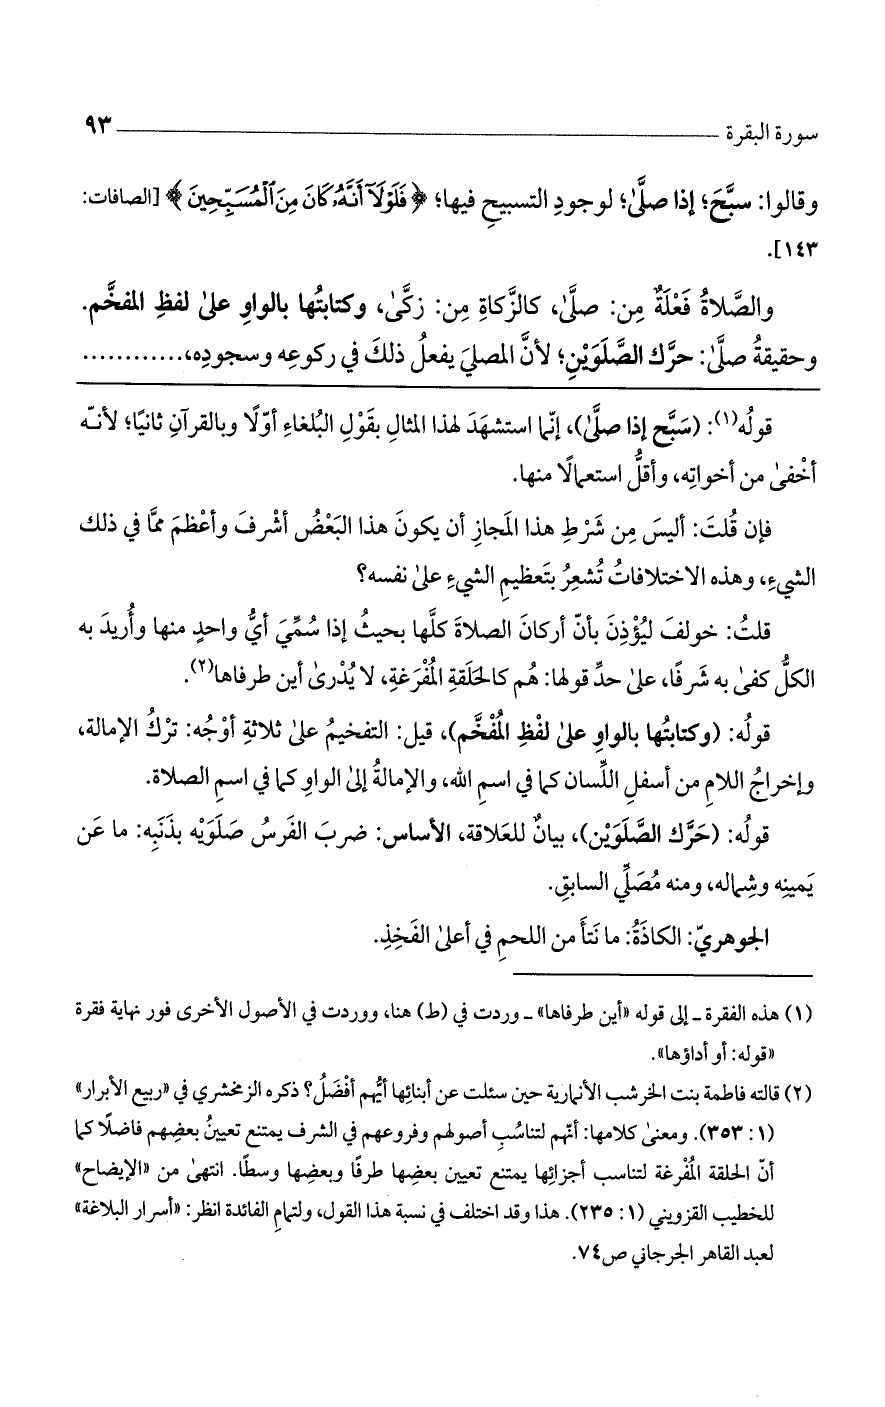 سورة البقرة ــــــــــــــــــــ ٩٣
وقالوا: سبَّحَ؛ إذا صلَّىٰ؛ لوجودِ التسبيحِ فيها؛ ﴿فَلَوْلَآ أَنَّهُۥ كَانَ مِنَ ٱلْمُسَبِّحِينَ﴾ [الصافات:
١٤٣].
والصَّلاةُ فَعْلَةٌ مِن: صلَّىٰ، كالزَّكاةِ مِن: زكَّىٰ، وكتابتُها بالواوِ علىٰ لفظِ المفخَّم.
وحقيقةُ صلَّىٰ: حرَّك الصَّلَوَيْنِ؛ لأنَّ المصليَ يفعلُ ذلكَ في ركوعِه وسجودِه،............
قولُه(١): (سَبَّح إذا صلَّىٰ)، إنّما استشهَدَ لهذا المثالِ بقَوْلِ البُلغاءِ أوّلًا وبالقرآنِ ثانيًا؛ لأنـّه
أخْفىٰ من أخواتِه، وأقلُّ استعمالًا منها.
فإن قُلتَ: أليسَ مِن شَرْطِ هذا المَجازِ أن يكونَ هذا البَعْضُ أشْرفَ وأعْظمَ ممَّا في ذلك
الشيءِ، وهذه الاختلافاتُ تُشعِرُ بتَعظيمِ الشيءِ علىٰ نفسه؟
قلتُ: خولفَ ليُؤْذِنَ بأنّ أركانَ الصلاةَ كلَّها بحيثُ إذا سُمِّيَ أيُّ واحدٍ منها وأُريدَ به
الكلُّ كفىٰ به شَرفًا، علىٰ حدِّ قولها: هُم كالحَلَقةِ المُفْرَغةِ، لا يُدْرىٰ أين طرفاها(٢).
قولُه: (وكتابتُها بالواوِ علىٰ لفْظِ المُفْخَّم)، قيل: التفخيمُ علىٰ ثلاثةِ أوْجُه: ترْكُ الإمالة،
وإخراجُ اللامِ من أسفلِ اللِّسان كما في اسمِ الله، والإمالةُ إلىٰ الواوِ كما في اسمِ الصلاة.
قولُه: (حَرَّك الصَّلَوَيْن)، بيانٌ للعَلاقة، الأساس: ضربَ الفَرسُ صَلَوَيْه بذَنَبِه: ما عَن
يَمينِه وشِماله، ومنه مُصَلِّي السابقِ.
الجوهريّ: الكاذَةُ: ما نَتأَ من اللحمِ في أعلىٰ الفَخِذِ.
(١) هذه الفقرة ـ إلى قوله «أين طرفاها» ـ وردت في (ط) هنا، ووردت في الأصول الأخرى فور نهاية فقرة
«قوله: أو أداؤها».
(٢) قالته فاطمة بنت الخرشب الأنمارية حين سئلت عن أبنائِها أيُّهم أفْضَلُ؟ ذكره الزمخشري في «ربيع الأبرار»
(١: ٣٥٣). ومعنىٰ كلامها: أنّهم لتناسُبِ أصولهم وفروعهم في الشرف يمتنع تعيينُ بعضِهم فاضلًا كما
أنّ الحلقة المُفْرغة لتناسب أجزائِها يمتنع تعيين بعضِها طرفًا وبعضِها وسطًا. انتهىٰ من «الإيضاح»
للخطيب القزويني (١: ٢٣٥). هذا وقد اختلف في نسبة هذا القول، ولتمامِ الفائدة انظر: «أسرار البلاغة»
لعبد القاهر الجرجاني ص٧٤.